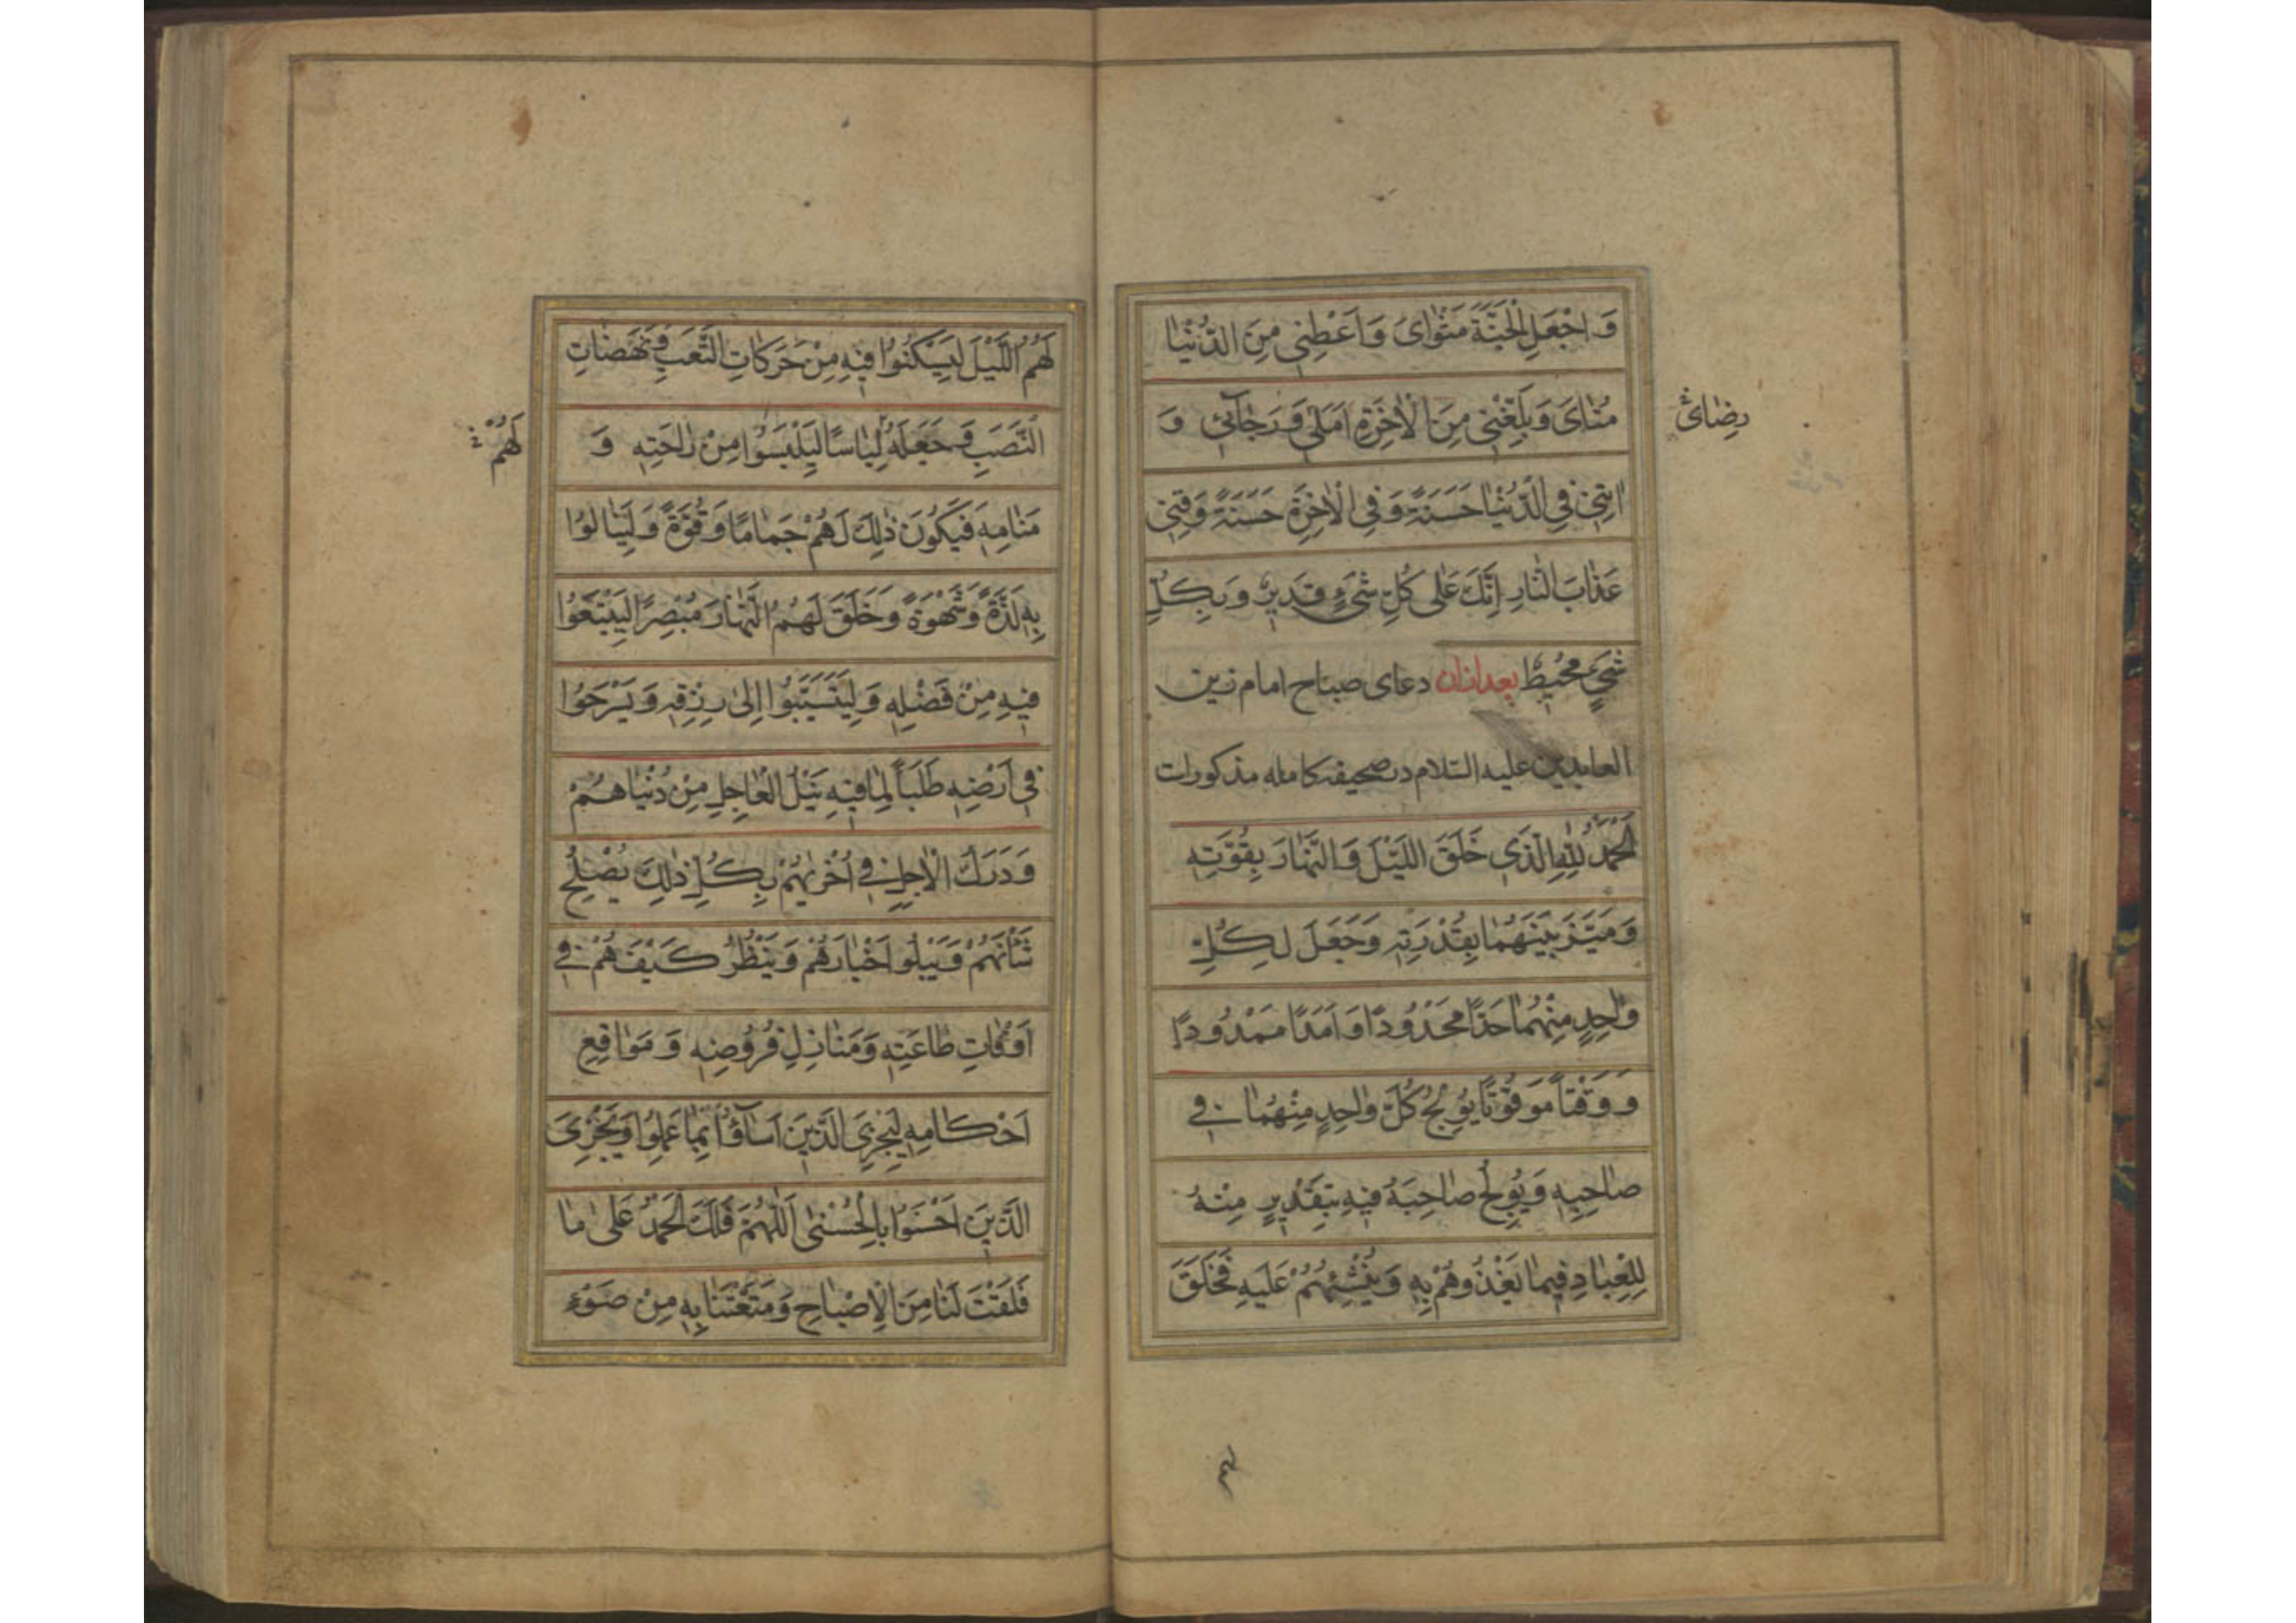 وَ اجْعَلِ الْجَنَّةَ مَثْوٰایَ وَ اَعْطِنِی مِنَ الدُّنْیٰا
مُنٰایَ وَ بَلِّغْنِی مِنَ الْاٰخِرَةِ اَمَلِی وَ رَجٰآئِی وَ
رضٰای
اٰتِنِی فِی الدُّنْیٰا حَسَنَةً وَ فِی الْاٰخِرَةِ حَسَنَةً وَ قِنِی
عَذٰابَ النّٰارِ اِنَّكَ عَلٰی كُلِّ شَیْءٍ قَدِیرٌ وَ بِكُلِّ
شَیْءٍ مُحِیطٌ بعد ازان دعای صباح امام زین
العابدین علیه السّلام در صحیفه کامله مذکورات
اَلْحَمْدُ لِلّٰهِ الَّذِی خَلَقَ اللَّیْلَ وَ النَّهٰارَ بِقُوَّتِهِ
وَ مَیَّزَ بَیْنَهُمٰا بِقُدْرَتِهِ وَ جَعَلَ لِكُلِّ
وٰاحِدٍ مِنْهُمٰا حَدًّا مَحْدُودًا وَ اَمَدًا مَمْدُودًا
وَ وَقْتًا مَوْقُوْتًا یُوْلِجُ كُلَّ وٰاحِدٍ مِنْهُمٰا فِی
صٰاحِبِهِ وَ یُوْلِجُ صٰاحِبَهُ فِیهِ بِتَقْدِیرٍ مِنْهُ
لِلْعِبٰادِ فِیمٰا یَغْذُوهُمْ بِهِ وَ یُنْشِئُهُمْ عَلَیْهِ فَخَلَقَ
لهم
لَهُمُ اللَّیْلَ لِیَسْكُنُوا فِیهِ مِنْ حَرَكٰاتِ التَّعَبِ وَ نَهَضٰاتِ
النَّصَبِ وَ جَعَلَهُ لِبٰاسًا لِیَلْبَسُوْا مِنْ رٰاحَتِهِ وَ
لَهُمْ
مَنٰامِهِ فَیَكُونَ ذٰلِكَ لَهُمْ جَمٰامًا وَ قُوَّةً وَ لِیَنٰالُوْا
بِهِ لَذَّةً وَ شَهْوَةً وَ خَلَقَ لَهُمُ النَّهٰارَ مُبْصِرًا لِیَبْتَغُوْا
فِیهِ مِنْ فَضْلِهِ وَ لِیَتَسَبَّبُوْا اِلٰی رِزْقِهِ وَ یَسْرَحُوْا
فِی اَرْضِهِ طَلَبًا لِمٰا فِیهِ نَیْلُ الْعٰاجِلِ مِنْ دُنْیٰاهُمْ
وَ دَرَكُ الْاٰجِلِ فِی اُخْرٰیهُمْ بِكُلِّ ذٰلِكَ یُصْلِحُ
شَاْنَهُمْ وَ یَبْلُو اَخْبٰارَهُمْ وَ یَنْظُرُ كَیْفَ هُمْ فِی
اَوْقٰاتِ طٰاعَتِهِ وَ مَنٰازِلِ فُرُوْضِهِ وَ مَوٰاقِعِ
اَحْكٰامِهِ لِیَجْزِیَ الَّذِینَ اَسٰآؤُا بِمٰا عَمِلُوا وَ یَجْزِیَ
الَّذِینَ اَحْسَنُوا بِالْحُسْنٰی اَللّٰهُمَّ فَلَكَ الْحَمْدُ عَلٰی مٰا
فَلَقْتَ لَنٰا مِنَ الْاِصْبٰاحِ وَ مَتَّعْتَنٰا بِهِ مِنْ ضَوْءِ